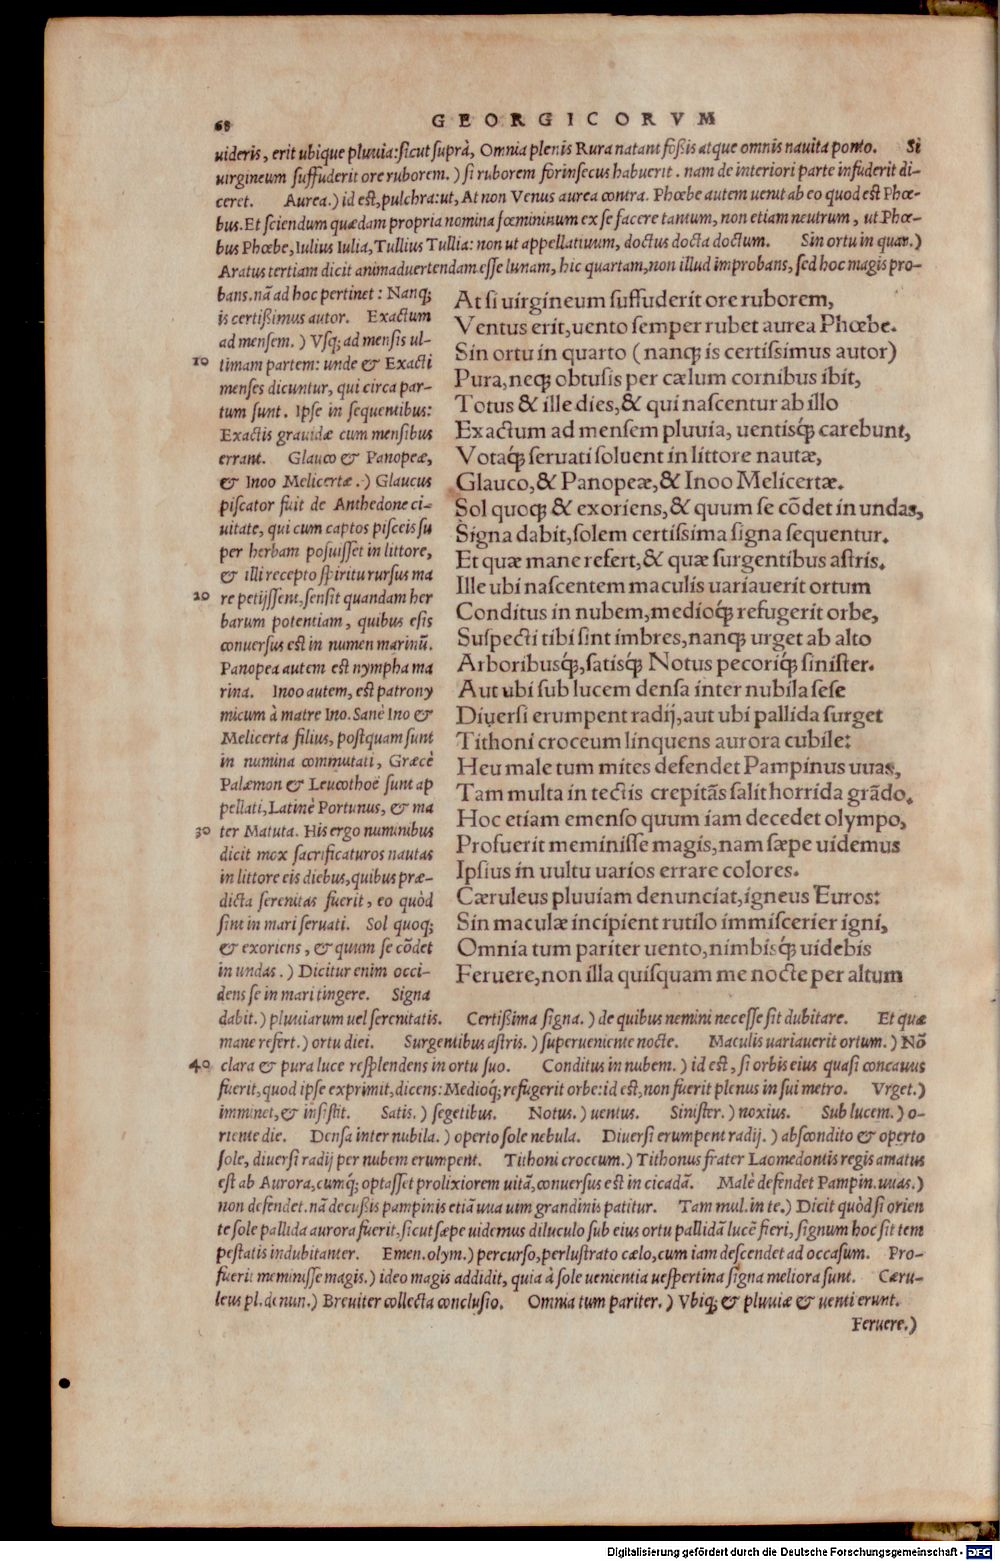 68 GEORGICORVM
uideris, erit ubique pluuia: ſicut ſuprà, Omnia plenis Rura natant foßis atque omnis nauita ponto. Si
uirgineum ſuffuderit ore ruborem.) ſi ruborem forinſecus habuerit. nam de interiori parte infuderit di-
ceret. Aurea.) id eſt, pulchra: ut, At non Venus aurea contra. Phœbe autem uenit ab eo quod eſt Phœ-
bus. Et ſciendum quædam propria nomina fœmininum ex ſe facere tantum, non etiam neutrum, ut Phœ-
bus Phœbe, Iulius Iulia, Tullius Tullia: non ut appellatiuum, doctus docta doctum. Sin ortu in quar.)
Aratus tertiam dicit animaduertendam eſſe lunam, hic quartam, non illud improbans, ſed hoc magis pro-
bans. nã ad hoc pertinet: Nanq;
is certißimus autor. Exactum
ad menſem.) Vſq; ad menſis ul-
10 timam partem: unde & Exacti
menſes dicuntur, qui circa par-
tum ſunt. Ipſe in ſequentibus:
Exactis grauidæ cum menſibus
errant. Glauco & Panopeæ,
& Inoo Melicertæ.) Glaucus
piſcator fuit de Anthedone ci-
uitate, qui cum captos piſceis ſu
per herbam poſuiſſet in littore,
& illi recepto ſpiritu rurſus ma
20 re petijſſent, ſenſit quandam her
barum potentiam, quibus eſis
conuerſus eſt in numen marinũ.
Panopea autem eſt nympha ma
rina. Inoo autem, eſt patrony
micum à matre Ino. Sanè Ino &
Melicerta filius, poſtquam ſunt
in numina commutati, Græcè
Palæmon & Leucothoë ſunt ap
pellati, Latinè Portunus, & ma
30 ter Matuta. His ergo numinibus
dicit mox ſacrificaturos nautas
in littore eis diebus, quibus præ-
dicta ſerenitas fuerit, eo quòd
ſint in mari ſeruati. Sol quoq;
& exoriens, & quum ſe cõdet
in undas.) Dicitur enim occi-
dens ſe in mari tingere. Signa
At ſi uirgineum ſuffuderit ore ruborem,
Ventus erit, uento ſemper rubet aurea Phœbe.
Sin ortu in quarto (nanq; is certiſsimus autor)
Pura, neq; obtuſis per cælum cornibus ibit,
Totus & ille dies, & qui naſcentur ab illo
Exactum ad menſem pluuia, uentisq́; carebunt,
Votaq́; ſeruati ſoluent in littore nautæ,
Glauco, & Panopeæ, & Inoo Melicertæ.
Sol quoq; & exoriens, & quum ſe cõdet in undas,
Signa dabit, ſolem certiſsima ſigna ſequentur.
Et quæ mane refert, & quæ ſurgentibus aſtris.
Ille ubi naſcentem maculis uariauerit ortum
Conditus in nubem, medioq́; refugerit orbe,
Suſpecti tibi ſint imbres, nanq; urget ab alto
Arboribusq́;, ſatisq́; Notus pecoriq́; ſiniſter.
Aut ubi ſub lucem denſa inter nubila ſeſe
Diuerſi erumpent radij, aut ubi pallida ſurget
Tithoni croceum linquens aurora cubile:
Heu male tum mites defendet Pampinus uuas,
Tam multa in tectis crepitãs ſalit horrida grãdo.
Hoc etiam emenſo quum iam decedet olympo,
Profuerit meminiſſe magis, nam ſæpe uidemus
Ipſius in uultu uarios errare colores.
Cæruleus pluuiam denunciat, igneus Euros:
Sin maculæ incipient rutilo immiſcerier igni,
Omnia tum pariter uento, nimbisq́; uidebis
Feruere, non illa quiſquam me nocte per altum
dabit.) pluuiarum uel ſerenitatis. Certißima ſigna.) de quibus nemini neceſſe ſit dubitare. Et quæ
mane refert.) ortu diei. Surgentibus aſtris.) ſuperueniente nocte. Maculis uariauerit ortum.) Nõ
40 clara & pura luce reſplendens in ortu ſuo. Conditus in nubem.) id eſt, ſi orbis eius quaſi concauus
fuerit, quod ipſe exprimit, dicens: Medioq́; refugerit orbe: id eſt, non fuerit plenus in ſui metro. Vrget.)
imminet, & inſiſtit. Satis.) ſegetibus. Notus.) uentus. Siniſter.) noxius. Sub lucem.) o-
riente die. Denſa inter nubila.) operto ſole nebula. Diuerſi erumpent radij.) abſcondito & operto
ſole, diuerſi radij per nubem erumpent. Tithoni croceum.) Tithonus frater Laomedontis regis amatus
eſt ab Aurora, cumq́; optaſſet prolixiorem uitã, conuerſus eſt in cicadã. Malè defendet Pampin. uuas.)
non defendet. nã decußis pampinis etiã uua uim grandinis patitur. Tam mul. in te.) Dicit quòd ſi orien
te ſole pallida aurora fuerit, ſicut ſæpe uidemus diluculo ſub eius ortu pallidã lucẽ fieri, ſignum hoc ſit tem
peſtatis indubitanter. Emen. olym.) percurſo, perluſtrato cælo, cum iam deſcendet ad occaſum. Pro-
fuerit meminiſſe magis.) ideo magis addidit, quia à ſole uenientia ueſpertina ſigna meliora ſunt. Cæru-
leus pl. denun.) Breuiter collecta concluſio. Omnia tum pariter.) Vbiq; & pluuiæ & uenti erunt.
Feruere.)
Digitalisierung gefördert durch die Deutsche Forschungsgemeinschaft - DFG